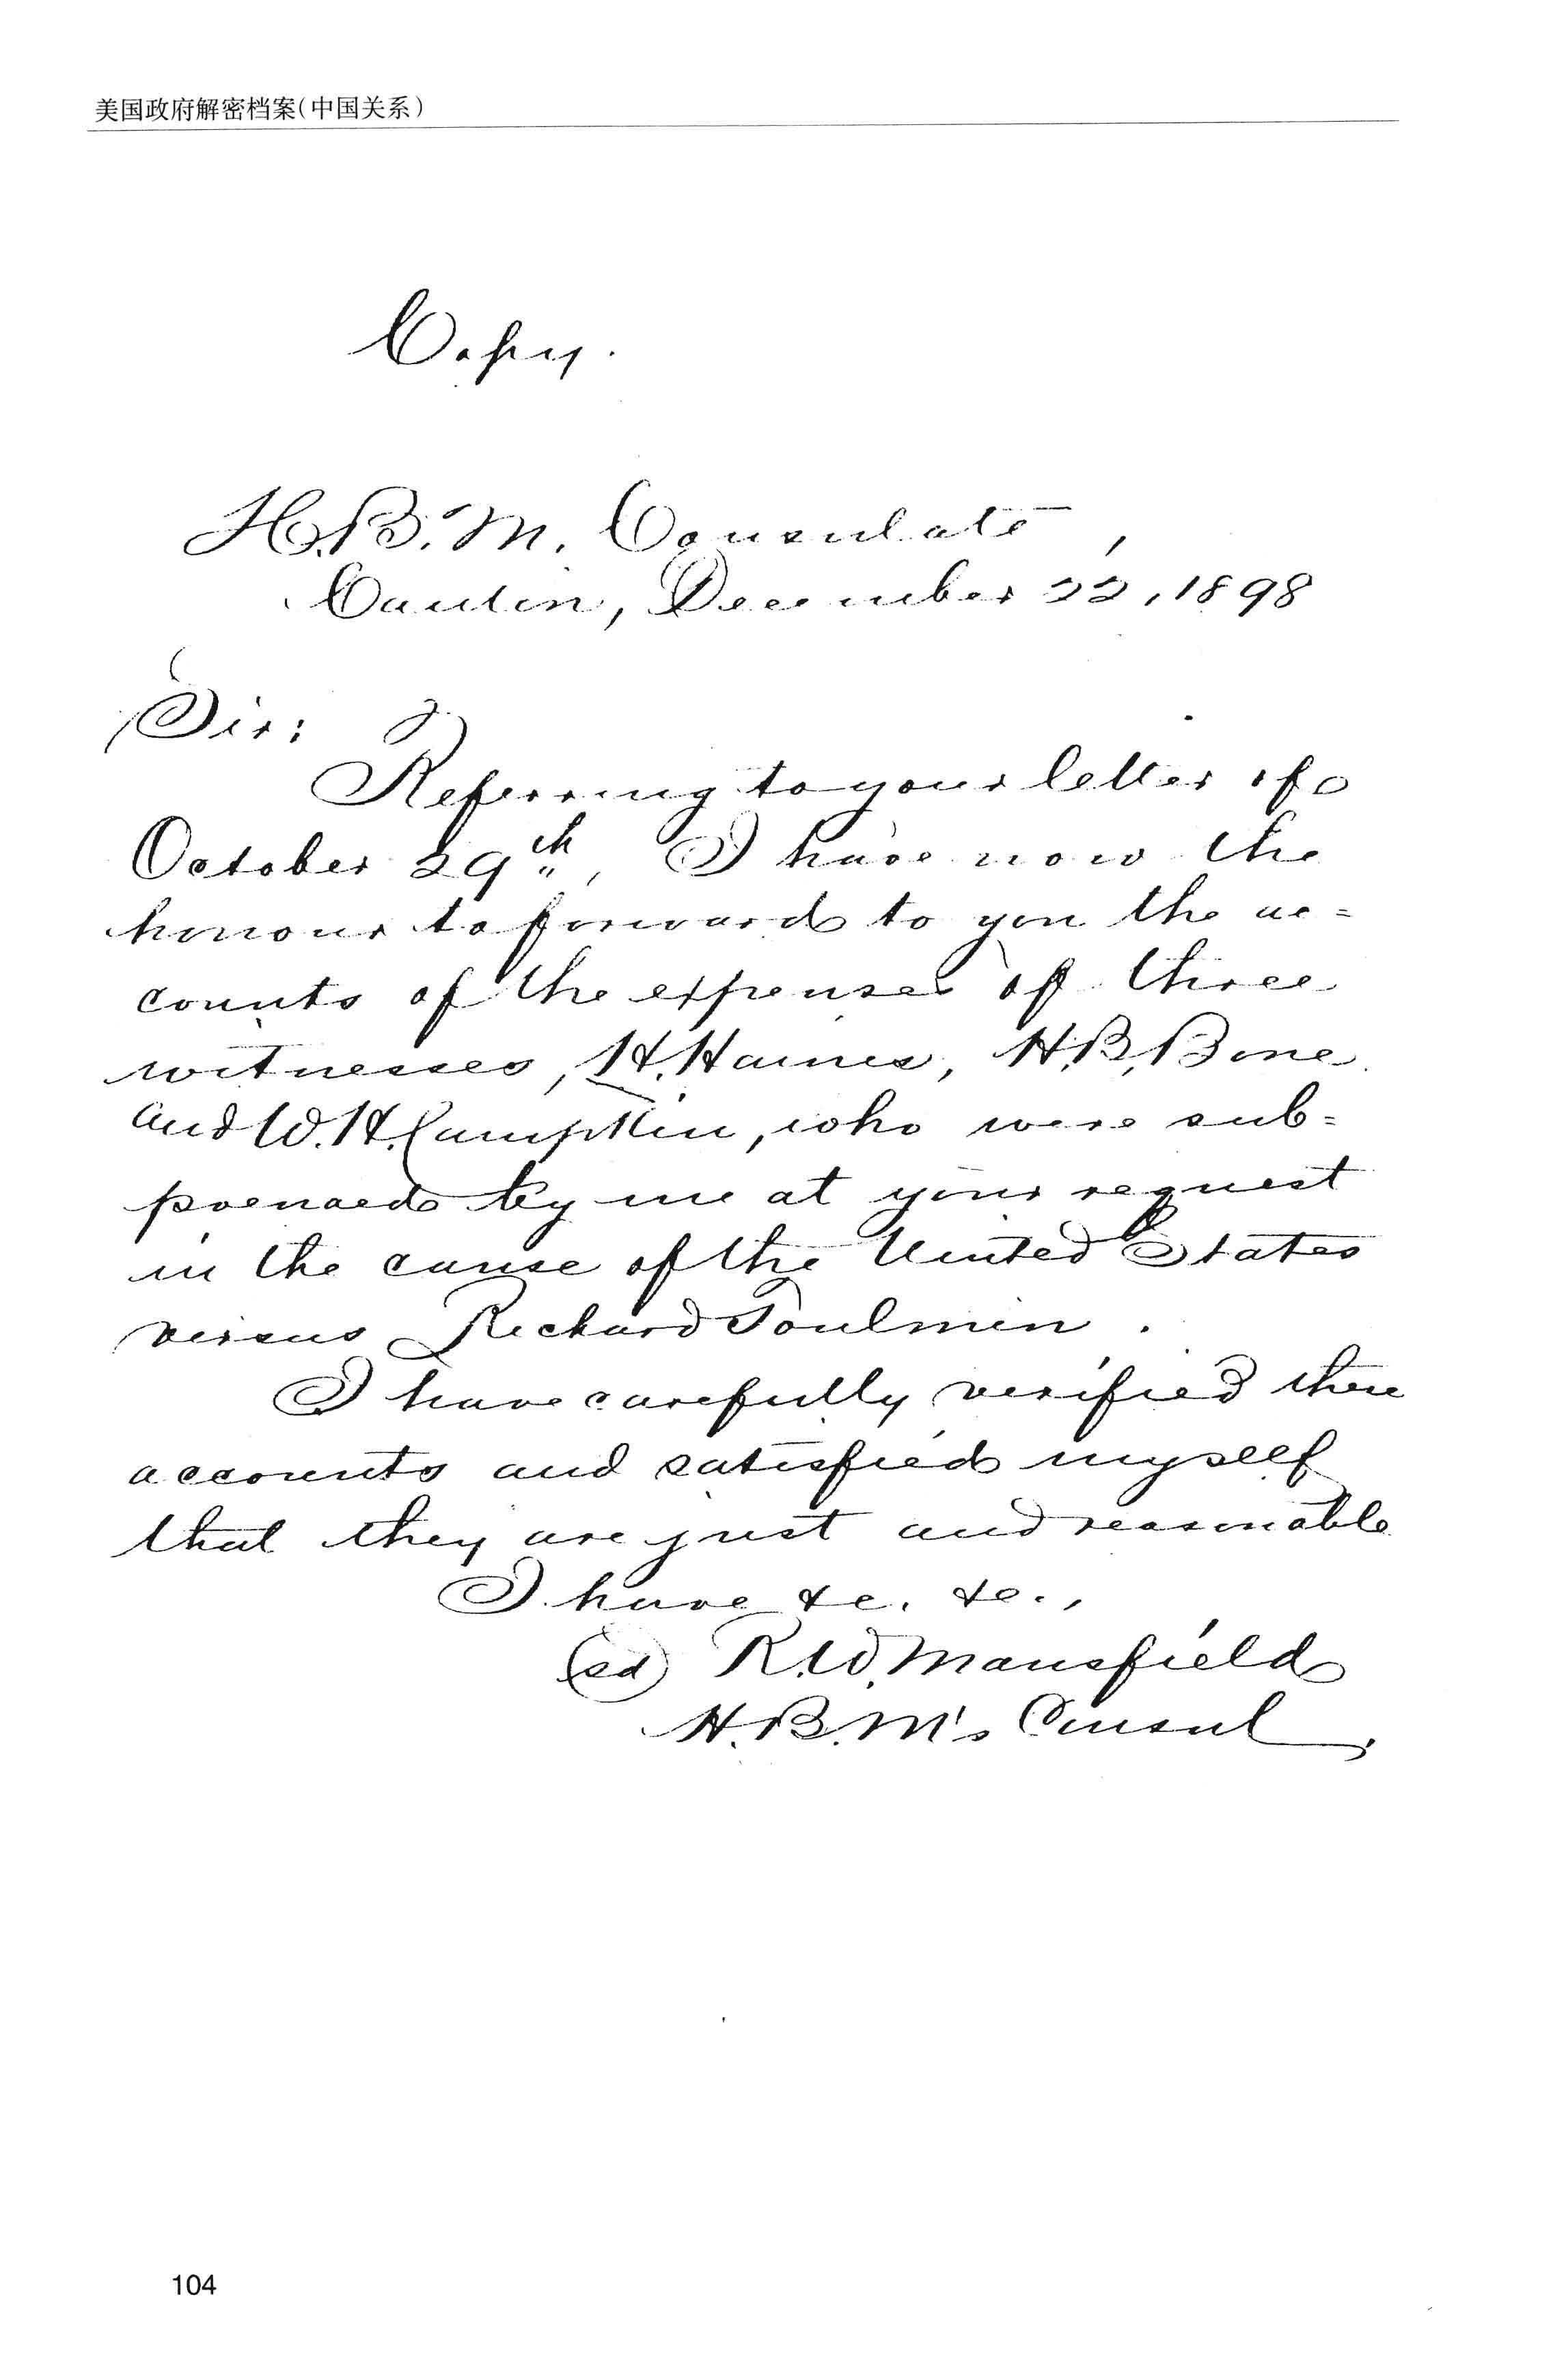 美国政府解密档案(中国关系)
Copy.
H.B.M. Consulate,
Canton, December 22, 1898
Sir:
Referring to your letter of
October 29th, I have now the
honour to forward to you the ac=
counts of the expenses of three
witnesses, H. Haines, H.B. Bone
and W.H. Campkin, who were sub=
poenaed by me at your request
in the cause of the United States
versus Richard Toulmin.
I have carefully verified these
accounts and satisfied myself
that they are just and reasonable
I have &c. &c.,
(sd) R.W. Mansfield
H.B.M's Consul.
104